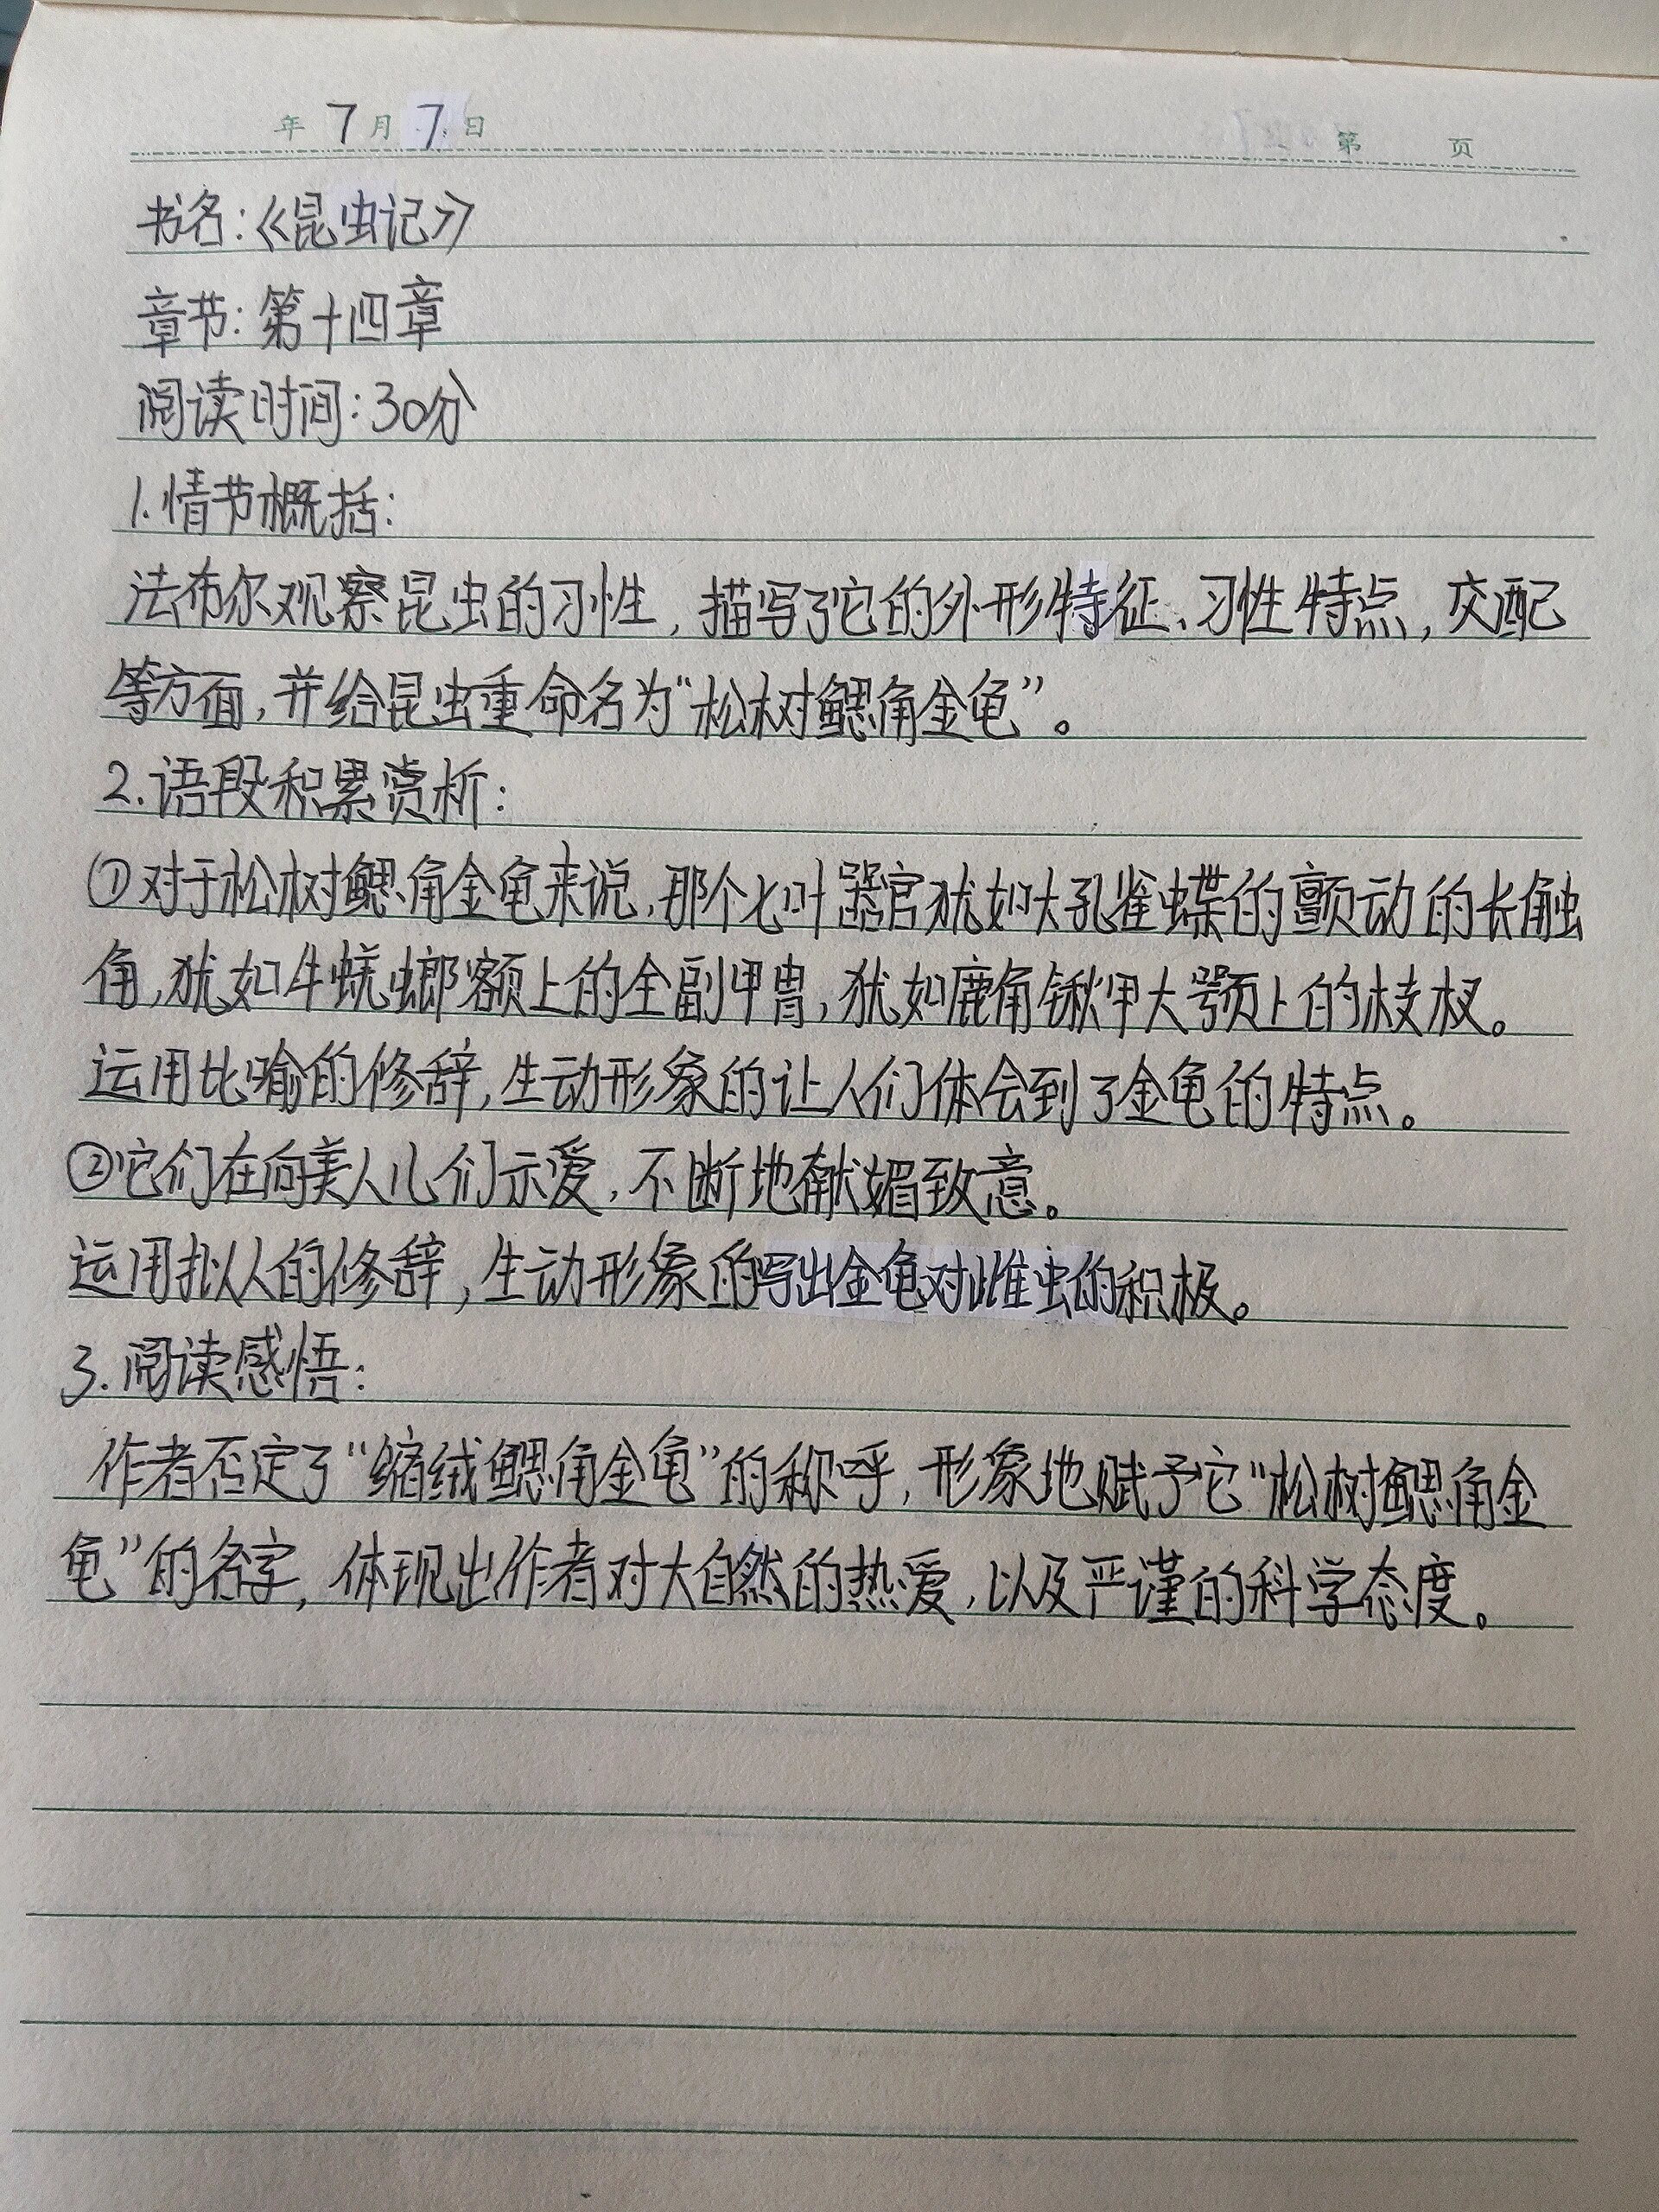 年 7 月 7 日 第 页
书名：《昆虫记》
章节：第十四章
阅读时间：30分
1.情节概括：
法布尔观察昆虫的习性，描写了它的外形特征、习性特点，交配
等方面，并给昆虫重命名为“松树鳃角金龟”。
2.语段积累赏析：
①对于松树鳃角金龟来说，那个七叶器官犹如大孔雀蝶的颤动的长触
角，犹如牛蜣螂额上的全副甲胄，犹如鹿角锹甲大颚上的枝杈。
运用比喻的修辞，生动形象的让人们体会到了金龟的特点。
②它们在向美人儿们示爱，不断地献媚致意。
运用拟人的修辞，生动形象的写出金龟对雌虫的积极。
3.阅读感悟：
作者否定了“缩绒鳃角金龟”的称呼，形象地赋予它“松树鳃角金
龟”的名字，体现出作者对大自然的热爱，以及严谨的科学态度。